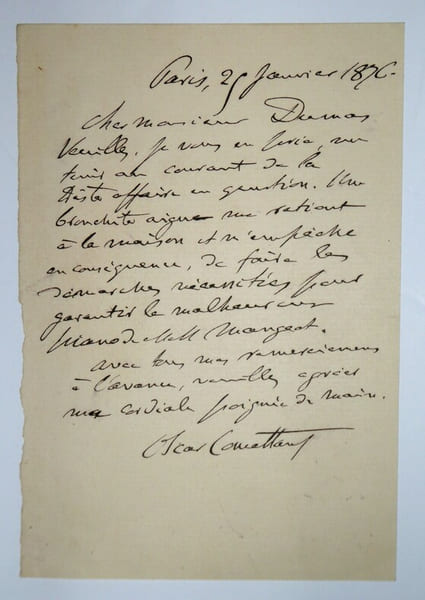 Paris, 25 Janvier 1876.
Cher Monsieur Dumas
Veuillez, je vous en prie, me
tenir au courant de la
triste affaire en question. Une
bronchite aigue me retient
à la maison et m'empêche
en conséquence, de faire les
démarches nécessitées pour
garantir le malheureux
piano de MM Mangeot.
avec tous mes remerciemens
à l'avance, veuillez agréer
ma cordiale poignée de main.
Oscar Comettant